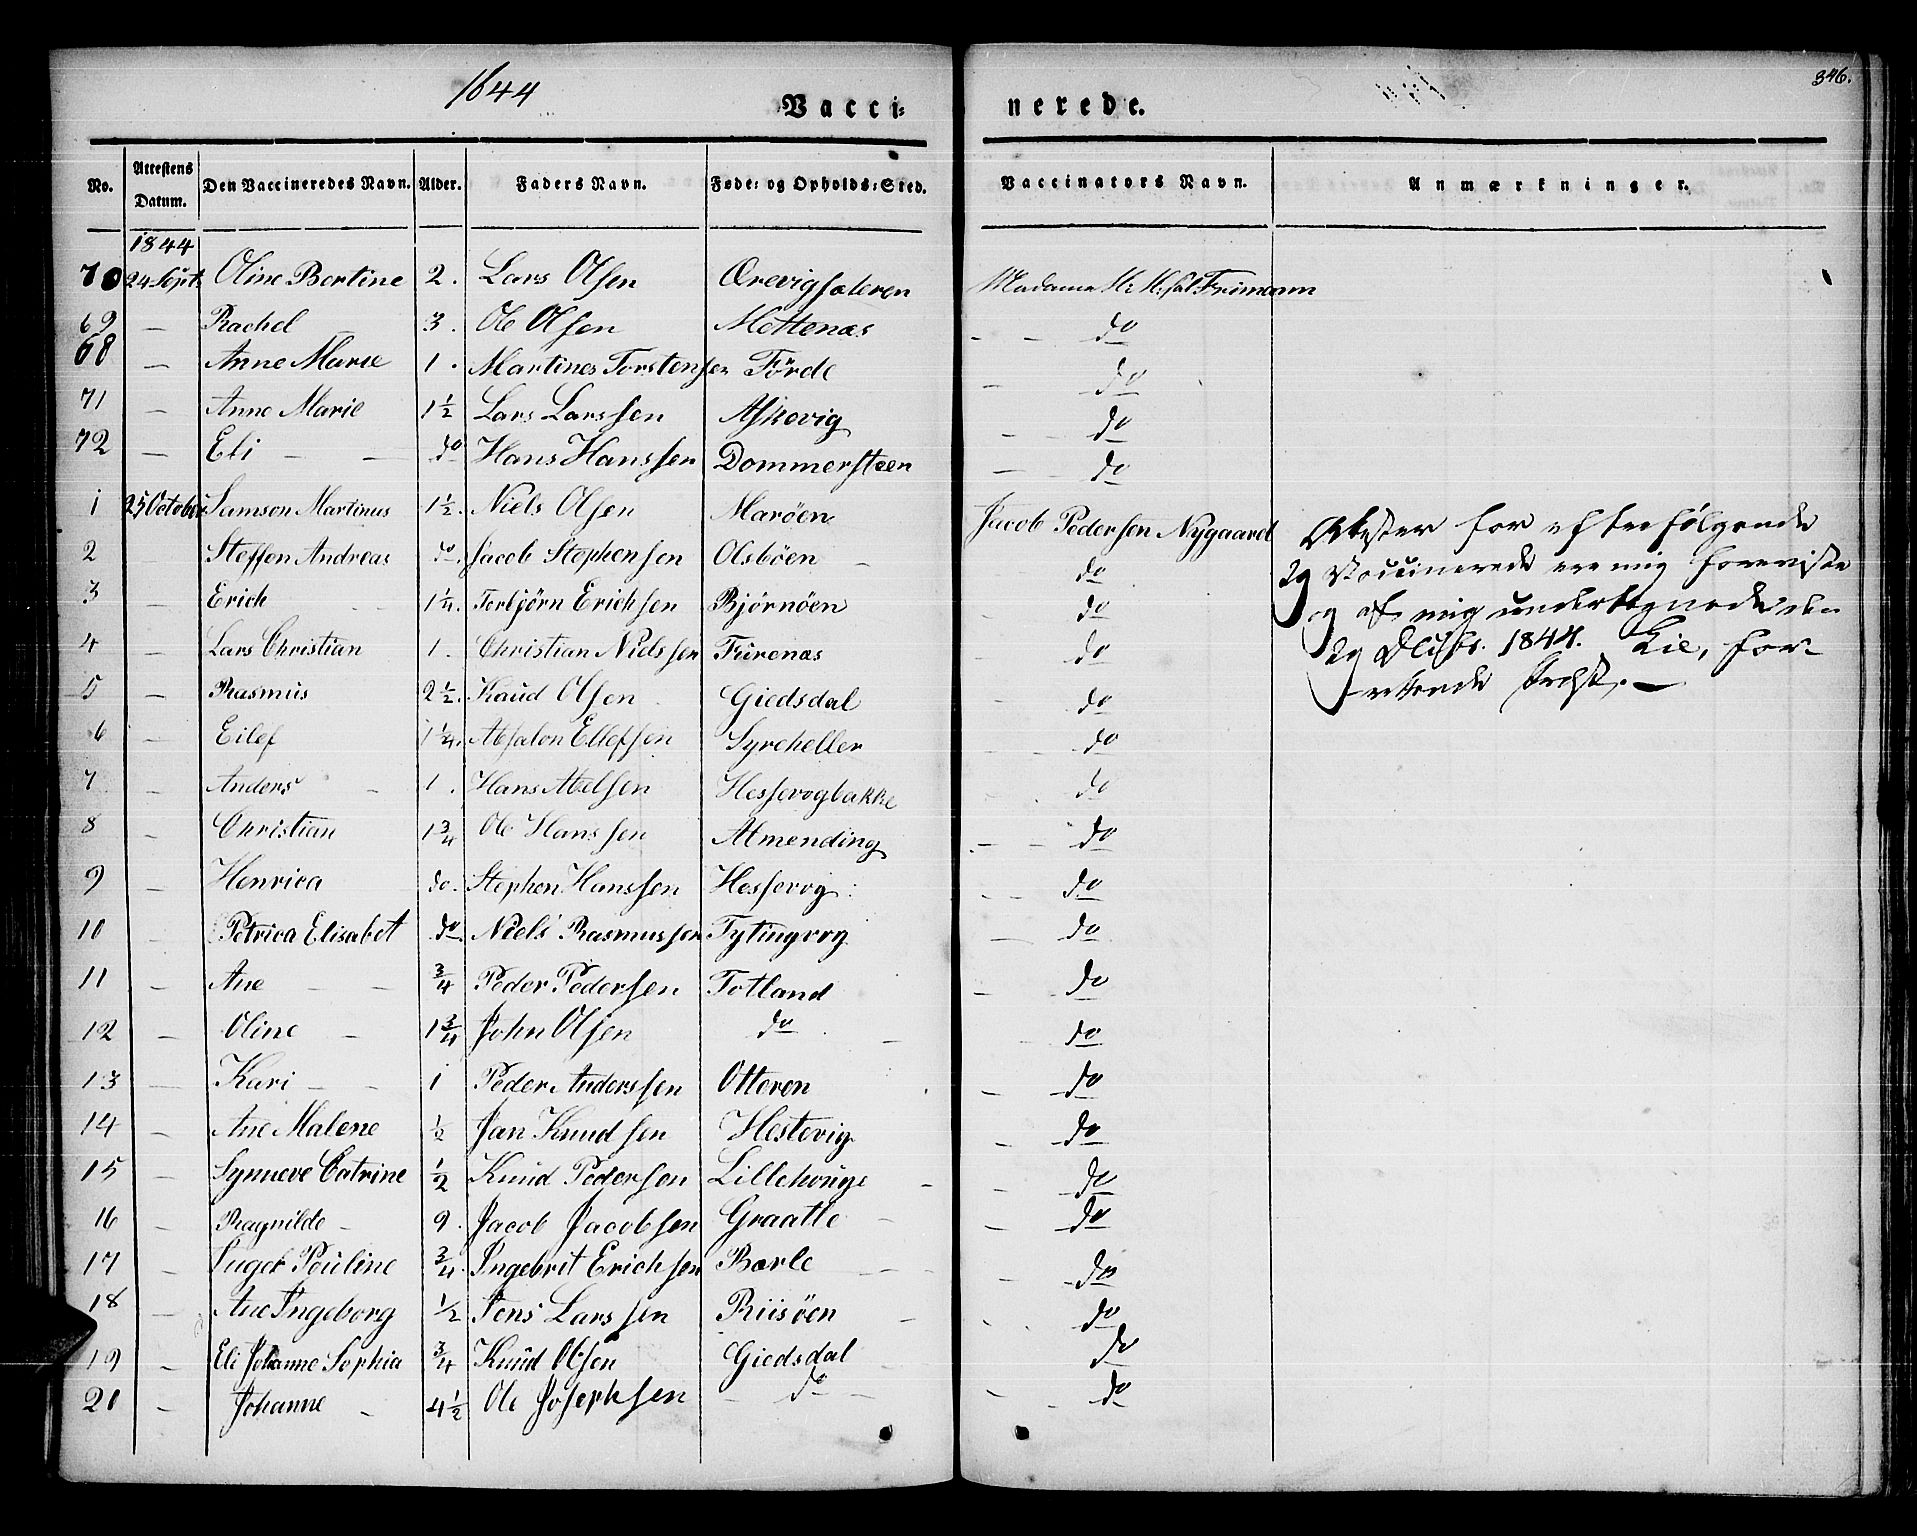 1844
346.
Vacci- nerede.
No. Attestens Datum. Den Vaccineredes Navn. Alder. Faders Navn. Føde- og Opholds-Sted. Vaccinators Navn. Anmærkninger.
1844
70 24 Sept. Oline Bertine 2. Lars Olsen Ørevigsæteren Madame H: H: sal Friimann
69 — Rachel 3. Ole Olsen Mottenæs - - do
68 — Anne Marie 1. Martines Torstensen Förde — do
71 — Anne Marie 1½ Lars Larssen Askevig — - do
72 — Eli — — do Hans Hanssen Dommersteen — do
1 25 October Samson Martinus 1½. Niels Olsen Maröen Jacob Pedersen Nygaard Attester for efterfølgende
2 Steffen Andreas do. Jacob Stephensen Olsböen - do 29 Vaccinerede ere mig foreviste
3 Erich 1¼. Torbjörn Erichsen Björnöen do og af mig undertegnede den
4 — Lars Christian 1. Christian Nielssen Furenæs do 29 1844. Lie, for-
5 — Rasmus 2½. Knud Olsen Giedsdal do rettende Præst. —
6 — Eilef 1¼. Absalon Ellefsen Syrcheller — do
7 — Anders - 1. Hans Abelsen Hessevogbakke do
8 — Christian 1¾ Ole Hanssen Almending — - do
9 — Henrica do. Stephen Hanssen Hessevog - - do
10 — Petrica Elisabet do Niels Rasmussen Tytingvog — do
11 — Ane - - ¾ Peder Pedersen Totland — do
12 — Oline - 1¾ John Olsen do - do
13 — Kari - - 1 Peder Anderssen Otteren - do
14 — Ane Malene ½ Jan Knudsen Hestevig — do
15 — Synneve Catrine ½ Knud Pedersen Lillehouge - — do
16 — Ragnilde - 9. Jacob Jacobsen Graatle - — do
17 — Inger Pouline ¾. Ingebrit Erichsen Barle - - — do
18 — Ane Ingeborg ½ Jens Larssen Riisöen - - . do
19 — Eli Johanne Sophia ¾ Knud Olsen Giedsdal - do
20 — Johanne - 4½ Ole Josephsen - do - — - do